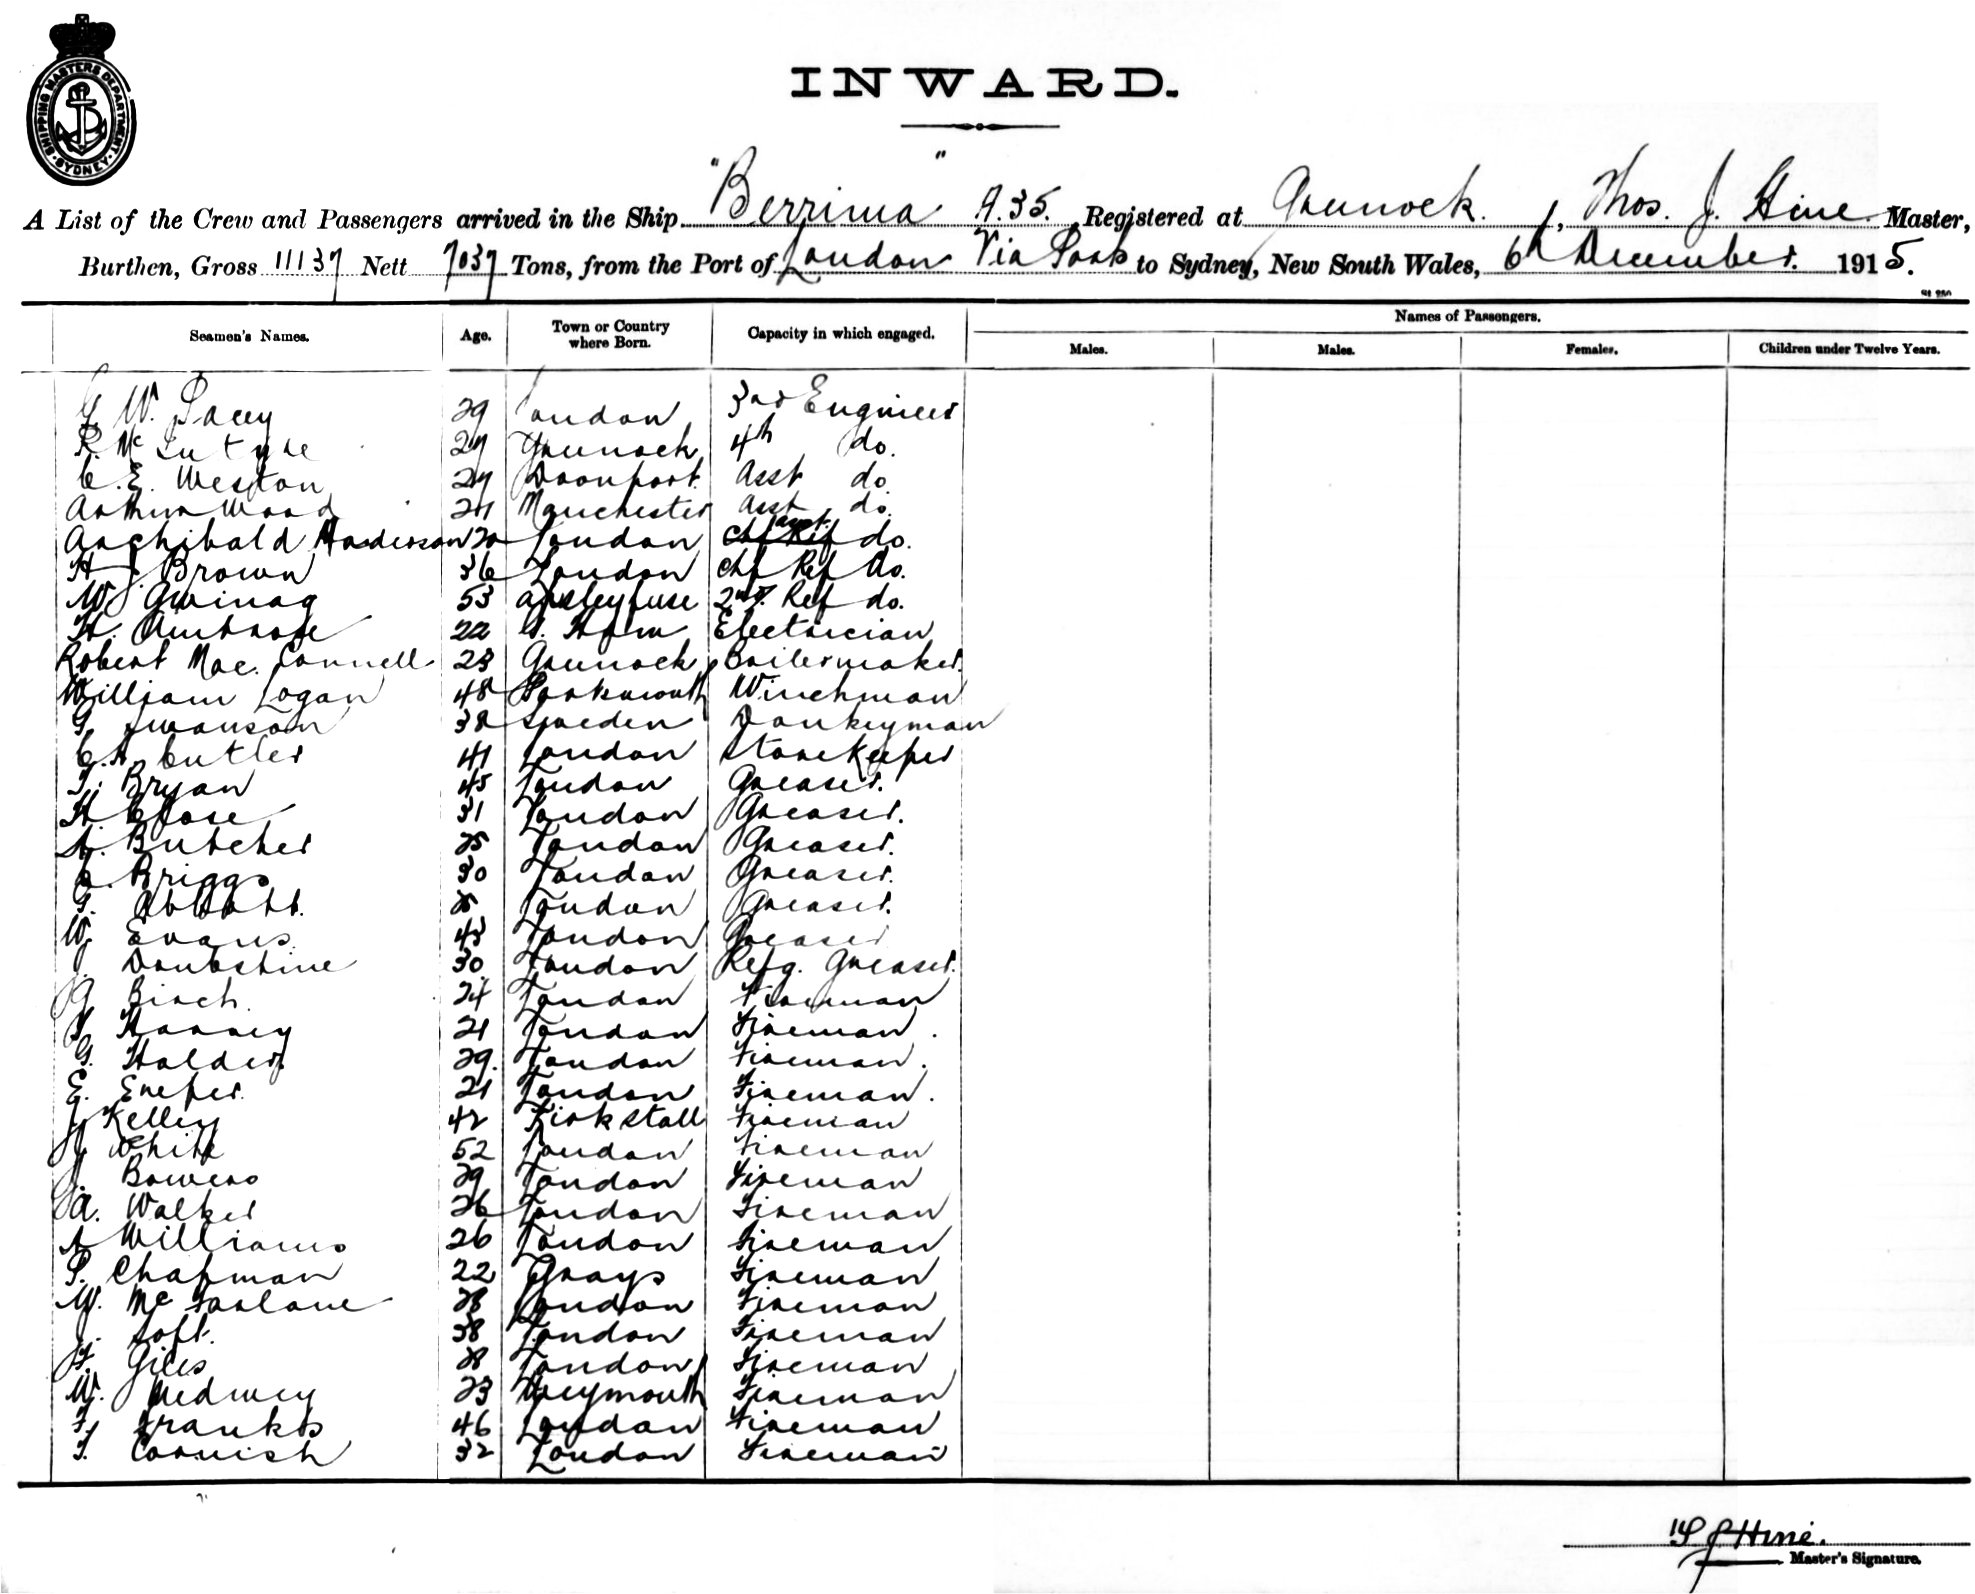 SHIPPING MASTERS DEPARTMENT · SYDNEY ·
INWARD.
A List of the Crew and Passengers arrived in the Ship "Berrima" A.35. Registered at Greenock, Thos. J. Hine Master,
Burthen, Gross 11137 Nett 7037 Tons, from the Port of London Via Ports to Sydney, New South Wales, 6th December. 1915.
Seamen's Names. Age. Town or Country where Born. Capacity in which engaged. Names of Passengers.
Males. Males. Females. Children under Twelve Years.
G W. Pacey 29 London 3rd Engineer
R. McIntyre 27 Greenock 4th do.
C. E. Weston 27 Devonport. Asst do.
Arthur Wood 24 Manchester Asst do.
Archibald London asst. do.
H J. Brown 36 London Chf Ref do.
W 53 2nd Ref do.
H. Ambrose 22 Electrician
Robert Mac. Connell 23 Greenock Boilermaker.
William Logan 48 Portsmouth Winchman
G Swanson 38 Sweden Donkeyman
C. A. Cutler 41 London Storekeeper
T. Bryan 45 London Greaser.
H Close 31 London Greaser.
A. Butcher 25 London Greaser.
Briggs 30 London Greaser.
G. Abbott. London Greaser.
W Evans 43 London Greaser
J. 30 London Refg. Greaser.
G Birch. 24 London Fireman
21 London Fireman.
G. Holder 29. London Fireman.
E. 21 London Fireman.
J Kelley 42 Kirkstall Fireman
J White 52 London Fireman
J. Bowers 29 London Fireman
A. Walker 26 London Fireman
A Williams 26 London Fireman
P. Chapman 22 Grays Fireman
W. McFarlane 28 London Fireman
J. 38 London Fireman
F. Giles 28 London Fireman
W. 23 Weymouth Fireman
F. Franks 46 London Fireman
T. Cornish 32 London Fireman
T J Hine.
Master's Signature.